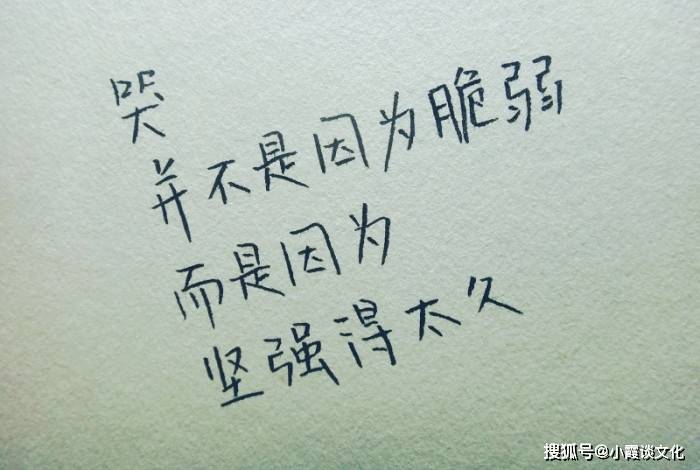 哭
并不是因为脆弱
而是因为
坚强得太久
搜狐号@小霞谈文化